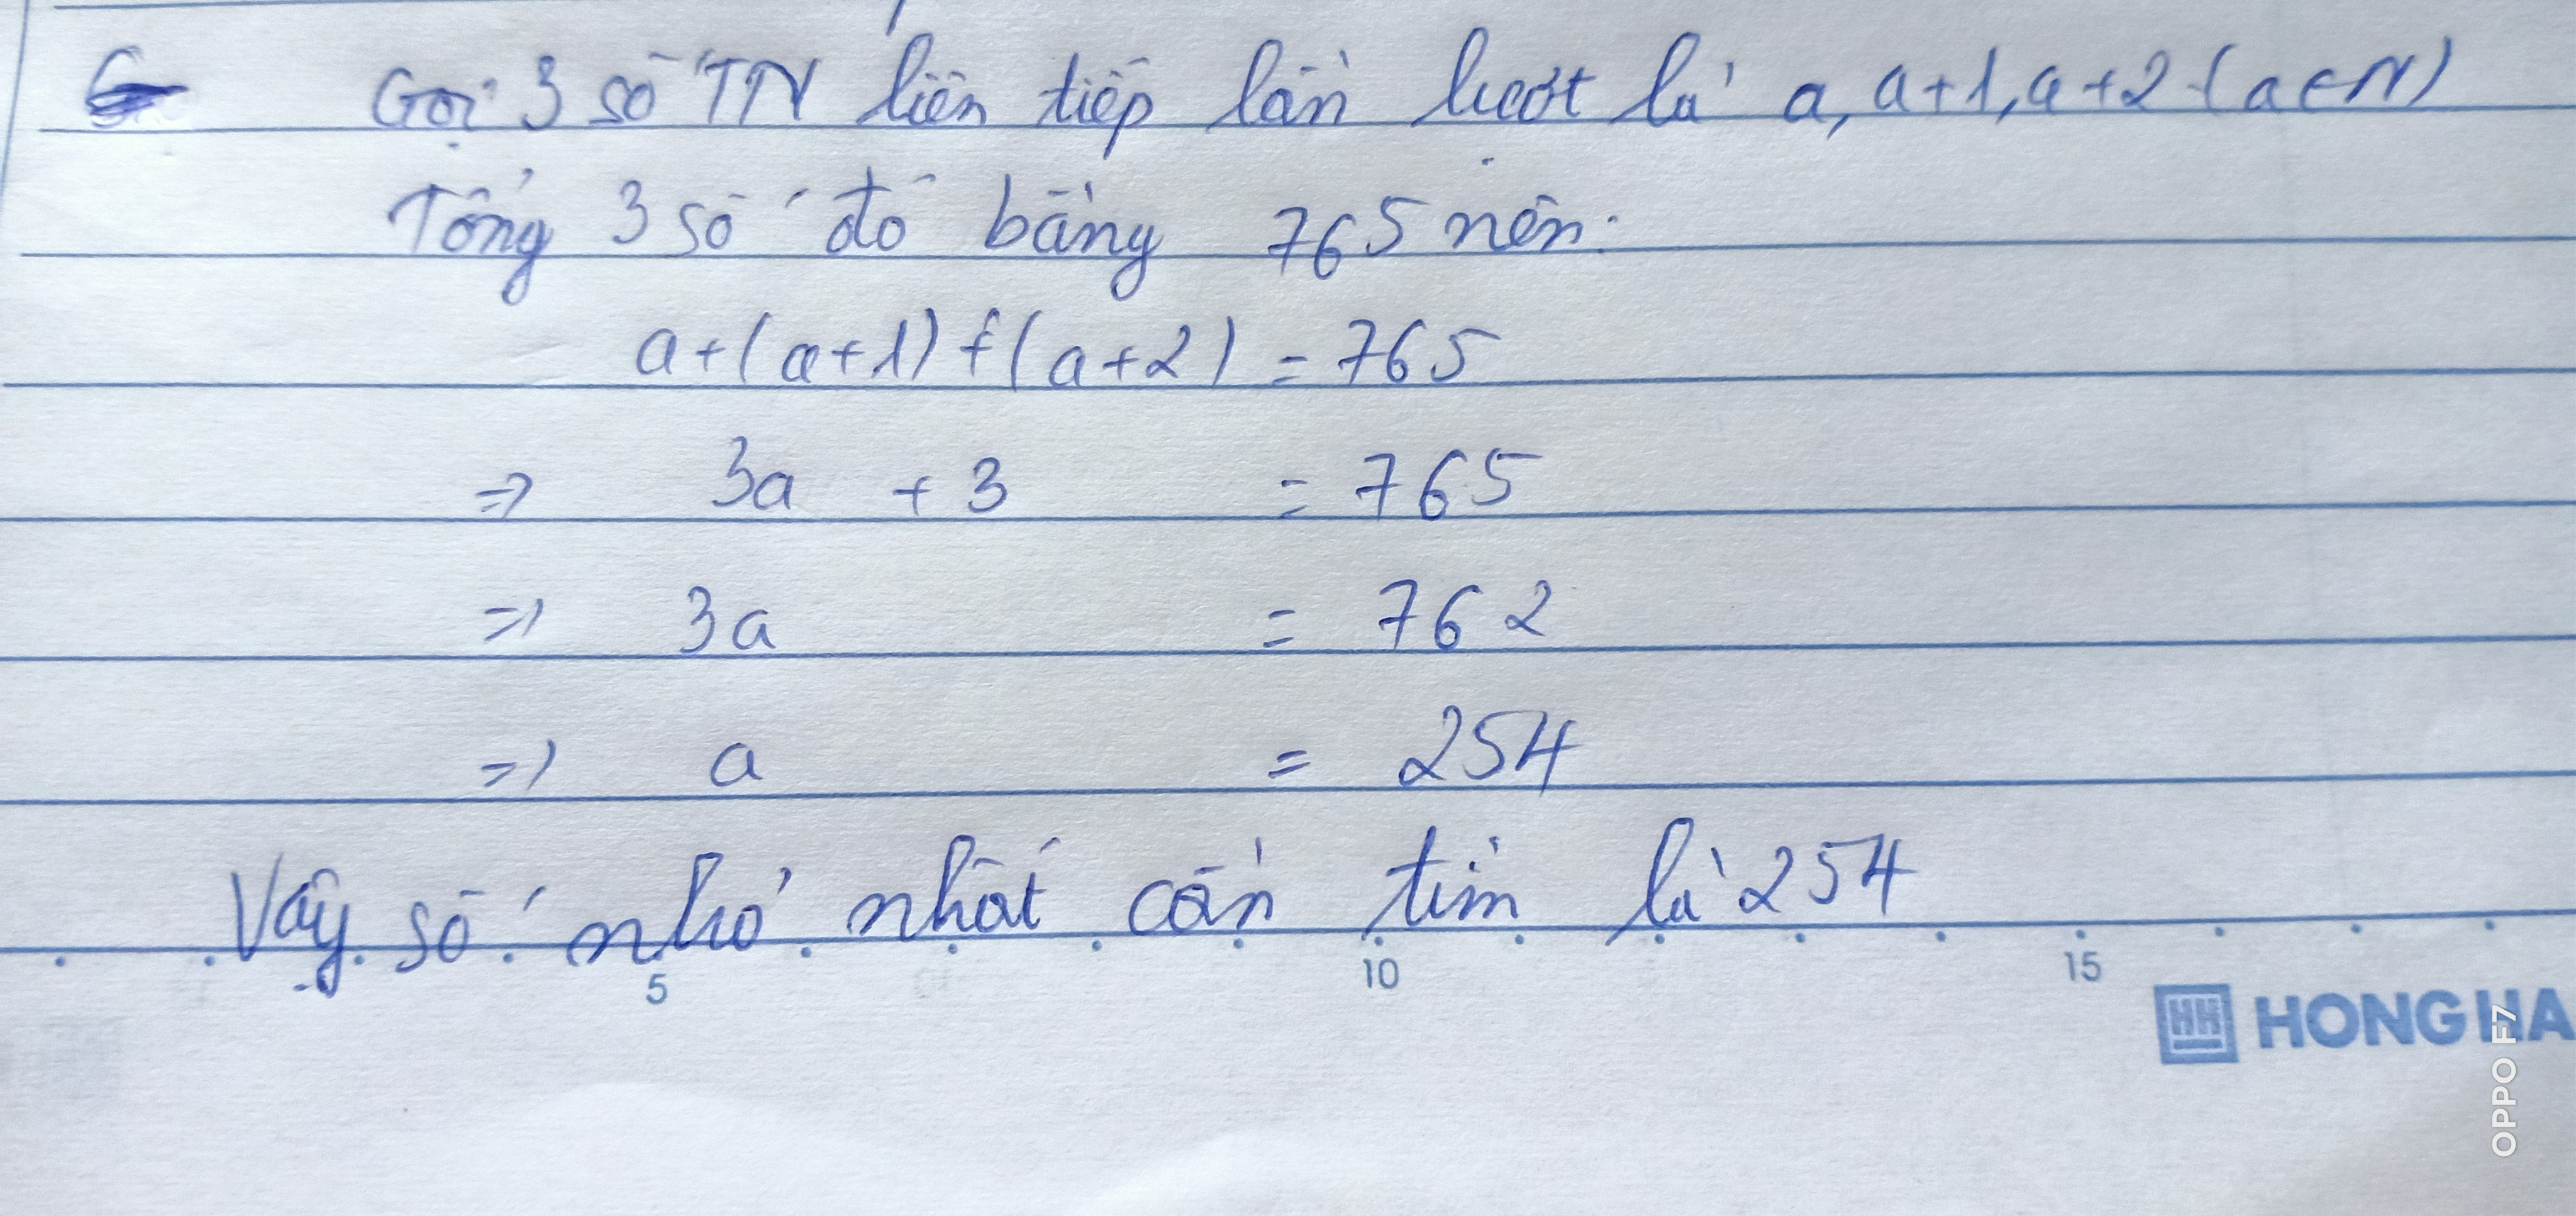 Gọi 3 số TN liên tiếp lần lượt là a, a+1, a+2 (a∈N)
Tổng 3 số đó bằng 765 nên:
a+(a+1)+(a+2) = 765
=> 3a + 3 = 765
=> 3a = 762
=> a = 254
Vậy số nhỏ nhất cần tìm là 254
5 10 15
HH HONG HA
OPPO F7